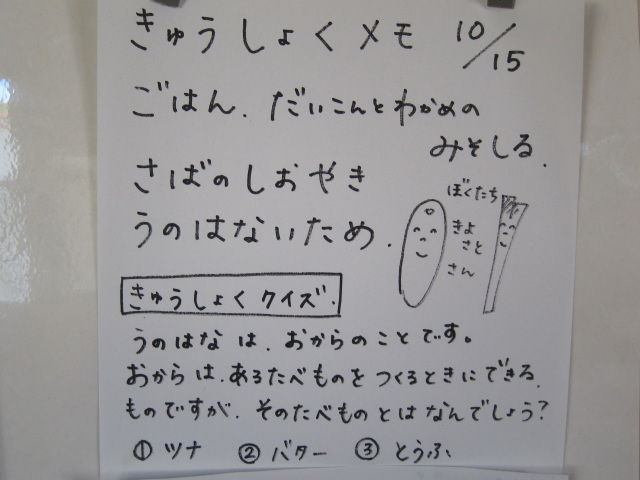 きゅうしょくメモ 10/15
ごはん、だいこんとわかめの
みそしる、
さばのしおやき
うのはないため、
ぼくたち
きよ
さと
さん
きゅうしょくクイズ
うのはなは、おからのことです。
おからは、あるたべものをつくるときにできる
ものですが、そのたべものとはなんでしょう?
① ツナ ② バター ③ とうふ